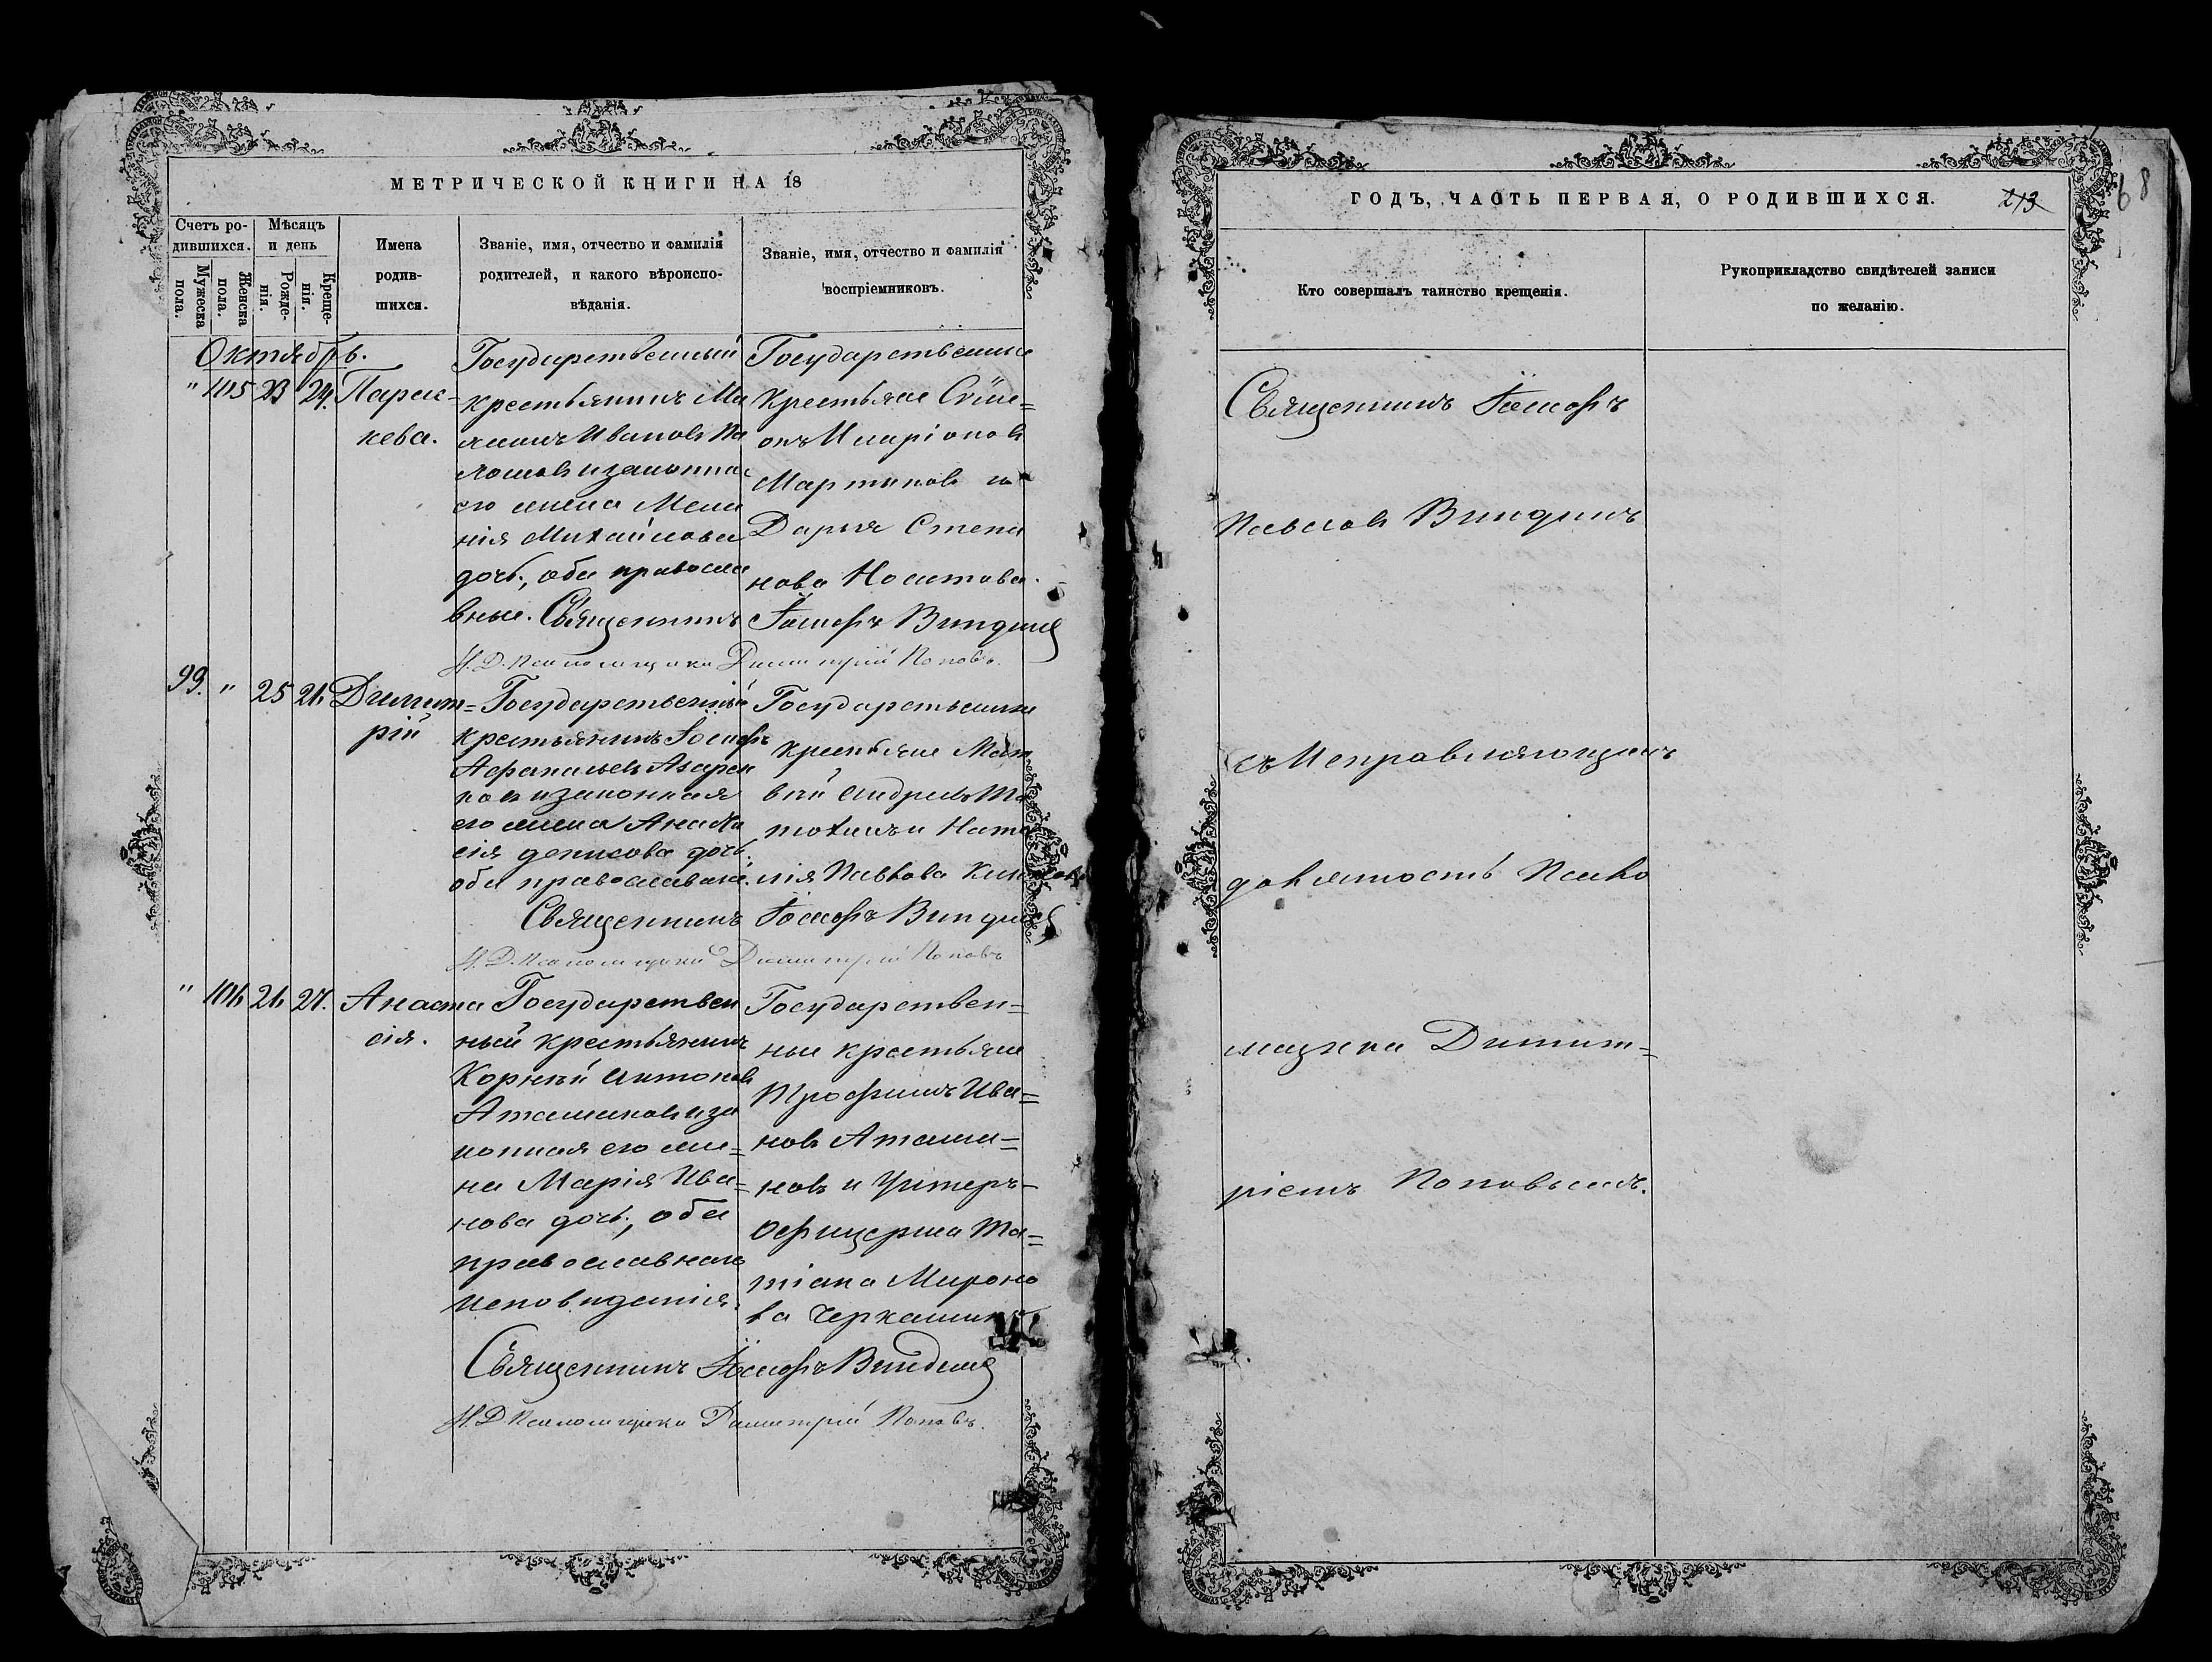 МЕТРИЧЕСКОЙ КНИГИ НА 18
Счетъ ро-
дившихся.
Мѣсяцъ
и день
Мужеска
пола.
Женска
пола.
Рожде-
нія.
Креще-
нія.
Имена
родив-
шихся.
Званіе, имя, отчество и фамилія
родителей, и какого вѣроиспо-
вѣданія.
Званіе, имя, отчество и фамилія
воспріемниковъ.
Октябрь.
" 105 23 24. Парас-
кева.
Государственный
крестьянинъ
Ивановъ
его жена Мела
нія Михайлова
дочь, оба правосла
вные. Священникъ Іосифъ Виндинъ
Государственные
Крестьяне Сѵме=
онъ Иларіоновъ
Мартыновъ и
Дарья Степа
нова
И. Д. Псаломщика Димитрій Поповъ.
99. " 25 26 Димит=
рій
Государственный
крестьянинъ Іосифъ
Афанасьевъ Азарен
ковъ и законная
его жена Анаста
сія Денисова дочь.
оба православные.
Государственные
крестьяне Мат
вѣй Андреевъ
и Ната
лія Павлова
Священникъ Іосифъ Виндинъ
И. Д. Псаломщика Димитрій Поповъ
" 106 26 27. Анаста
сія.
Государствен
ный крестьянинъ
Корнѣй Антоновъ
Атамановъ и за
конная его же=
на Марія Ива=
нова дочь, оба
православнаго
исповѣданія.
Государствен=
ные крестьяне
Трофимъ Ива=
новъ Атама=
новъ и Унтеръ-
Офицерша Та=
тіана Мироно
ва Черкашина
Священникъ Іосифъ Виндинъ
И. Д. Псаломщика Димитрій Поповъ.
ГОДЪ, ЧАСТЬ ПЕРВАЯ, О РОДИВШИХСЯ.
213
68
Кто совершалъ таинство крещенія.
Рукоприкладство свидѣтелей записи
по желанію.
Священникъ Іосифъ
Павловъ Виндинъ
съ Исправляющимъ
должность Псало
мщика Димит=
ріемъ Поповымъ.